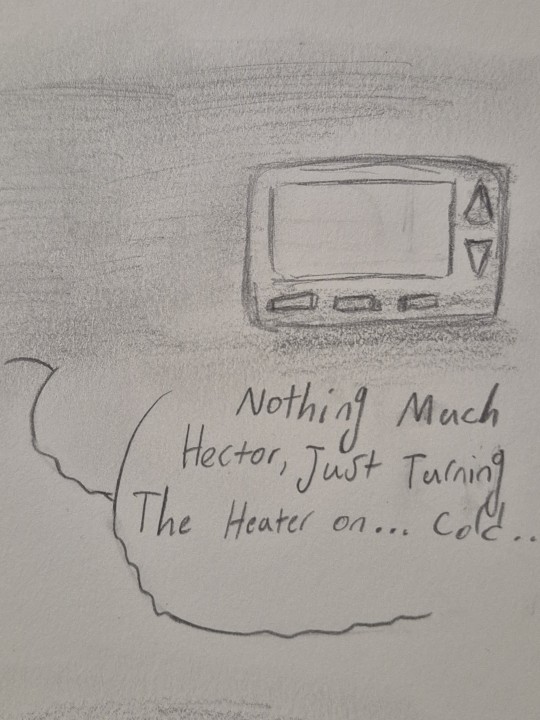 Nothing Much
Hector, Just Turning
The Heater on... Cold..